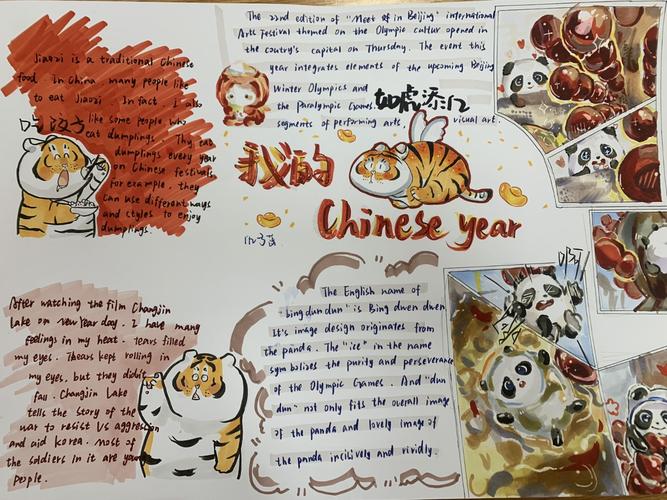 Jiaozi is a traditional Chinese
food. In China many people like
to eat Jiaozi. In fact I also
like some people who
eat dumplings. They eat
dumplings every year
on Chinese festivals
for example, they
can use different ways
and styles to enjoy
dumplings.
The 22nd edition of "Meet in Beijing" international
Arts Festival themed on the Olympic cultur opened in
the coutry's capital on Thursday. The event this
year integrates elements of the upcoming Beijing
Winter Olympics and
the Paralympic Games.
segments of performing arts, visual art.
如虎添亿
我的
Chinese year
After watching the film Changjin
Lake on new Year day. I have many
feelings in my heat. Tears filled
my eyes. Thears kept rolling in
my eyes, but they didn't
fall. Changjin Lake
tells the story of the
war to resist Us aggression
and aid Korea. most of
the soldiers in it are young
people.
The English name of
"bing dun dun" is Bing dwen dwen
It's image design originates from
the panda. The "ice" in the name
symbolizes the purity and perseverance
of the Olympic Games. And "dun
dun" not only fits the overall image
of the panda and lovely image of
the panda incisively and vividly.